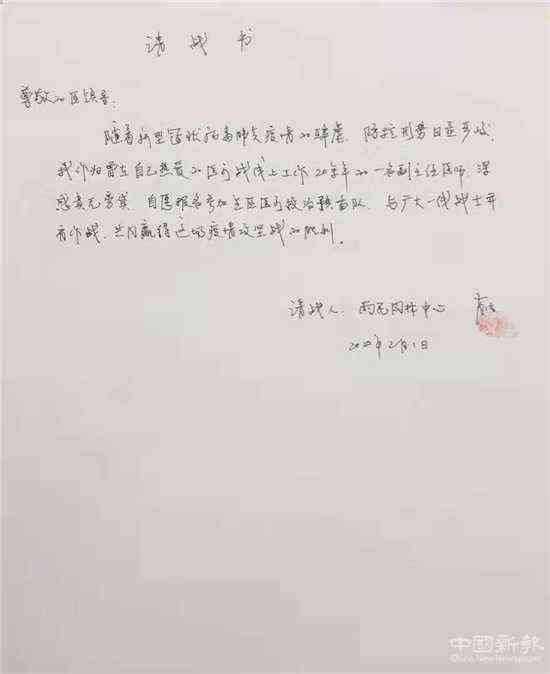 请战书
尊敬的区领导：
随着新型冠状病毒肺炎疫情的肆虐，防控形势日益严峻，
我作为曾在自己热爱的医疗战线上工作20余年的一名副主任医师，深
感责无旁贷，自愿报名参加全区医疗救治预备队，与广大一线战士并
肩作战，共同赢得这场疫情攻坚战的胜利。
请战人：园林中心
2020年2月1日
中國新報
China.NewNewspaper